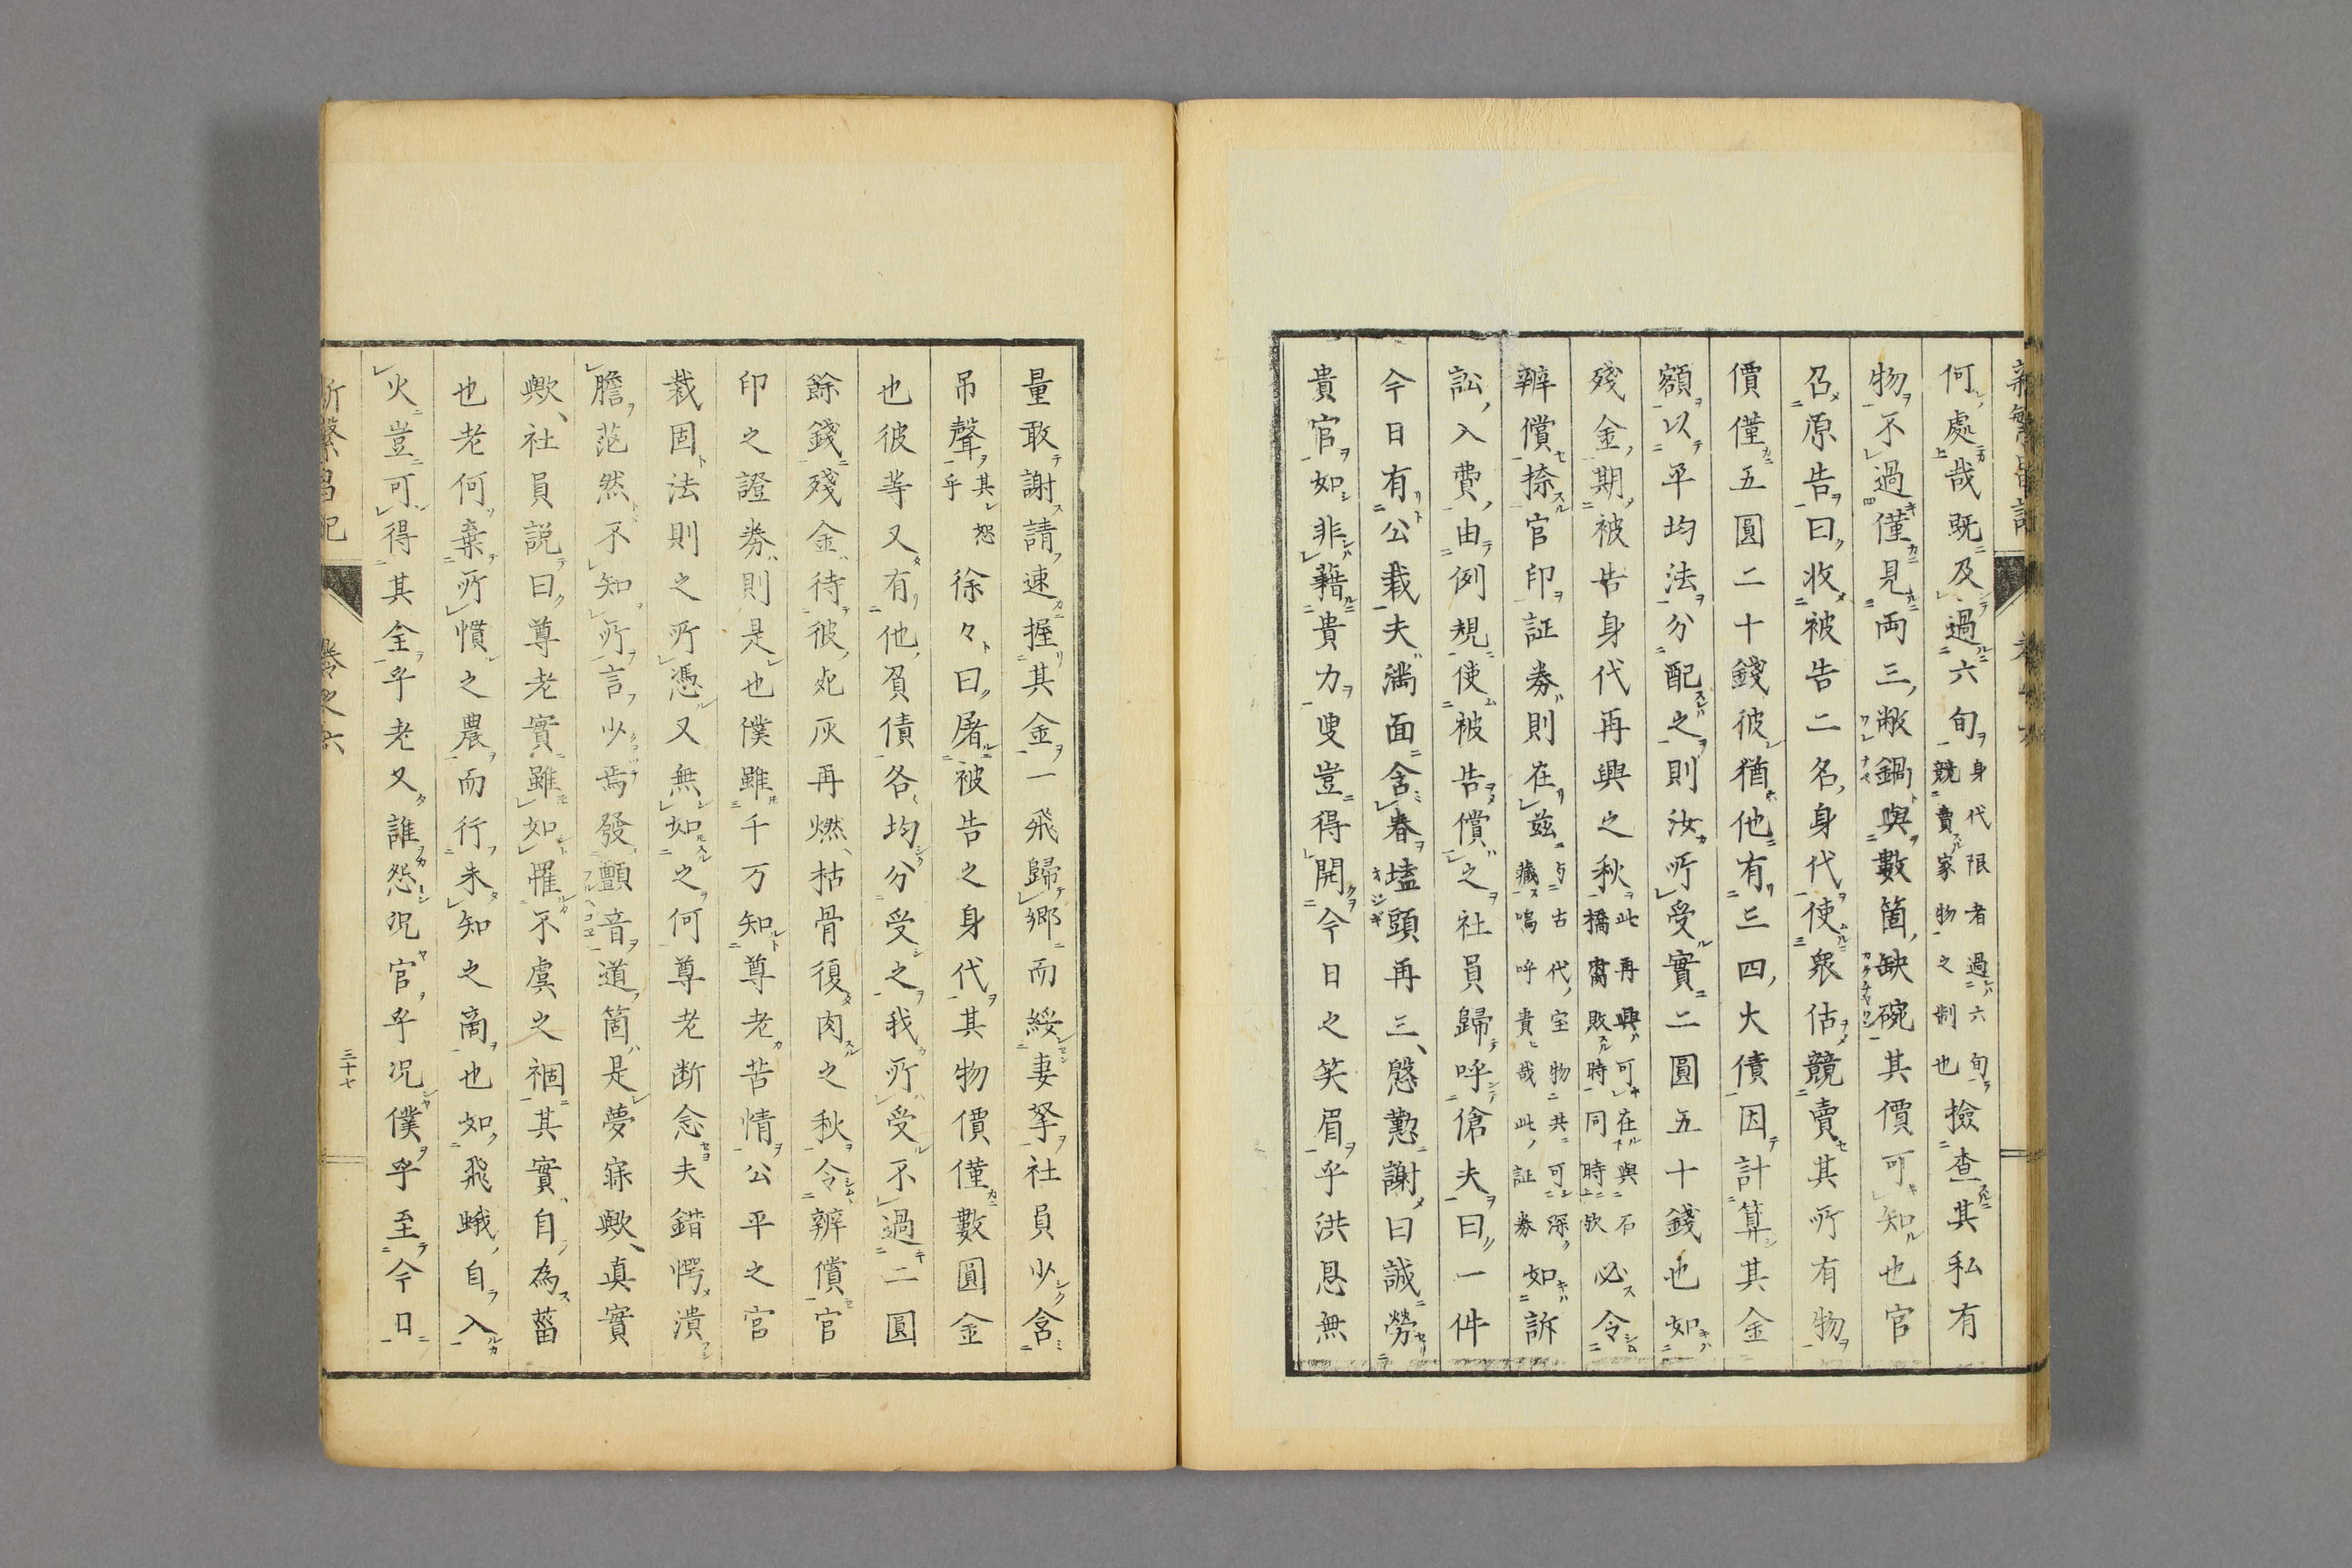 何處哉既及過六旬身代限者過六旬競賣家物之制也撿查其私有
物不過僅見両三敝鍋與數箇缺碗其價可知也官
召原告曰收被告二名身代使衆估競賣其所有物
價僅五圓二十錢彼猶他有三四大債因計算其金
額以平均法分配之則汝所受實二圓五十錢也如
殘金期被告身代再興之秋此再興可在與石橋腐敗時同時欤必令
辨償捺官印証券則在茲与古代宝物共可深藏嗚呼貴哉此証券如訴
訟入費由例規使被告償之社員歸呼傖夫曰一件
今日有公裁夫満面含春𡏖頭再三慇懃謝曰誠勞
貴官如非藉貴力叟豈得開今日之笑眉乎洪恩無
量敢謝請速握其金一飛歸郷而綏妻孥社員少含
吊聲其恕乎徐々曰屠被告之身代其物價僅數圓金
也彼等又有他負債各均分受之我所受不過二圓
餘錢殘金待彼死灰再燃枯骨復肉之秋令辨償官
印之證券則是也僕雖千万知尊老苦情公平之官
裁固法則之所憑又無如之何尊老断念夫錯愕潰
膽茫然不知所言少焉發顫音道箇是夢寐歟真實
歟社員説曰尊老實雖如罹不虞之禍其實自為菑
也老何棄所慣之農而行未知之商也如飛蛾自入
火豈可得其全乎老又誰怨況官乎況僕乎至今日
新繁昌記 卷之六 三十七